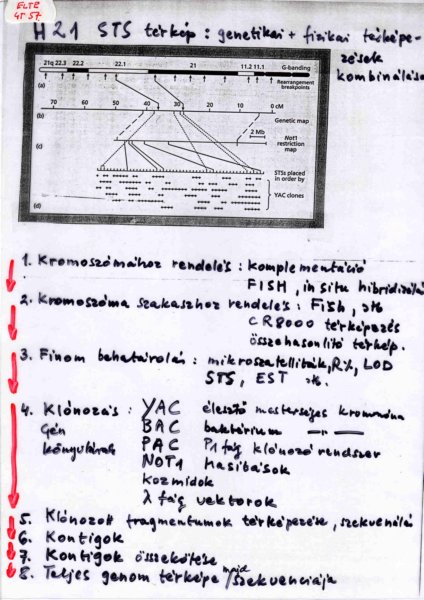 ELTE
GT 57
H21 STS térkép : genetikai + fizikai térképe-
zések
kombinálása
21q 22.3 22.2 22.1 21 11.2 11.1 G-banding
Rearrangement
breakpoints
(a)
70 60 50 40 30 20 10 0 cM
(b) Genetic map
2 Mb
(c) Not1
restriction
map
STSs placed
in order by
YAC clones
(d)
1. Kromoszómához rendelés : komplementáció
FISH, in situ hibridizálás
2. Kromoszóma szakaszhoz rendelés : Fish, stb
CR8000 térképezés
összehasonlító térkép.
3. Finom behatárolás : mikroszatelliták, R%, LOD
STS, EST stb.
4. Klónozás : YAC élesztő mesterséges kromoszóma
Gén BAC baktérium —"—
könyvtárak PAC P1 fág klónozó rendszer
NOT1 hasítások
Kozmidok
λ fág vektorok
5. Klónozott fragmentumok térképezése, szekvenálás
6. Kontigok
7. Kontigok összekötése
8. Teljes genom térképe majd /szekvenciája